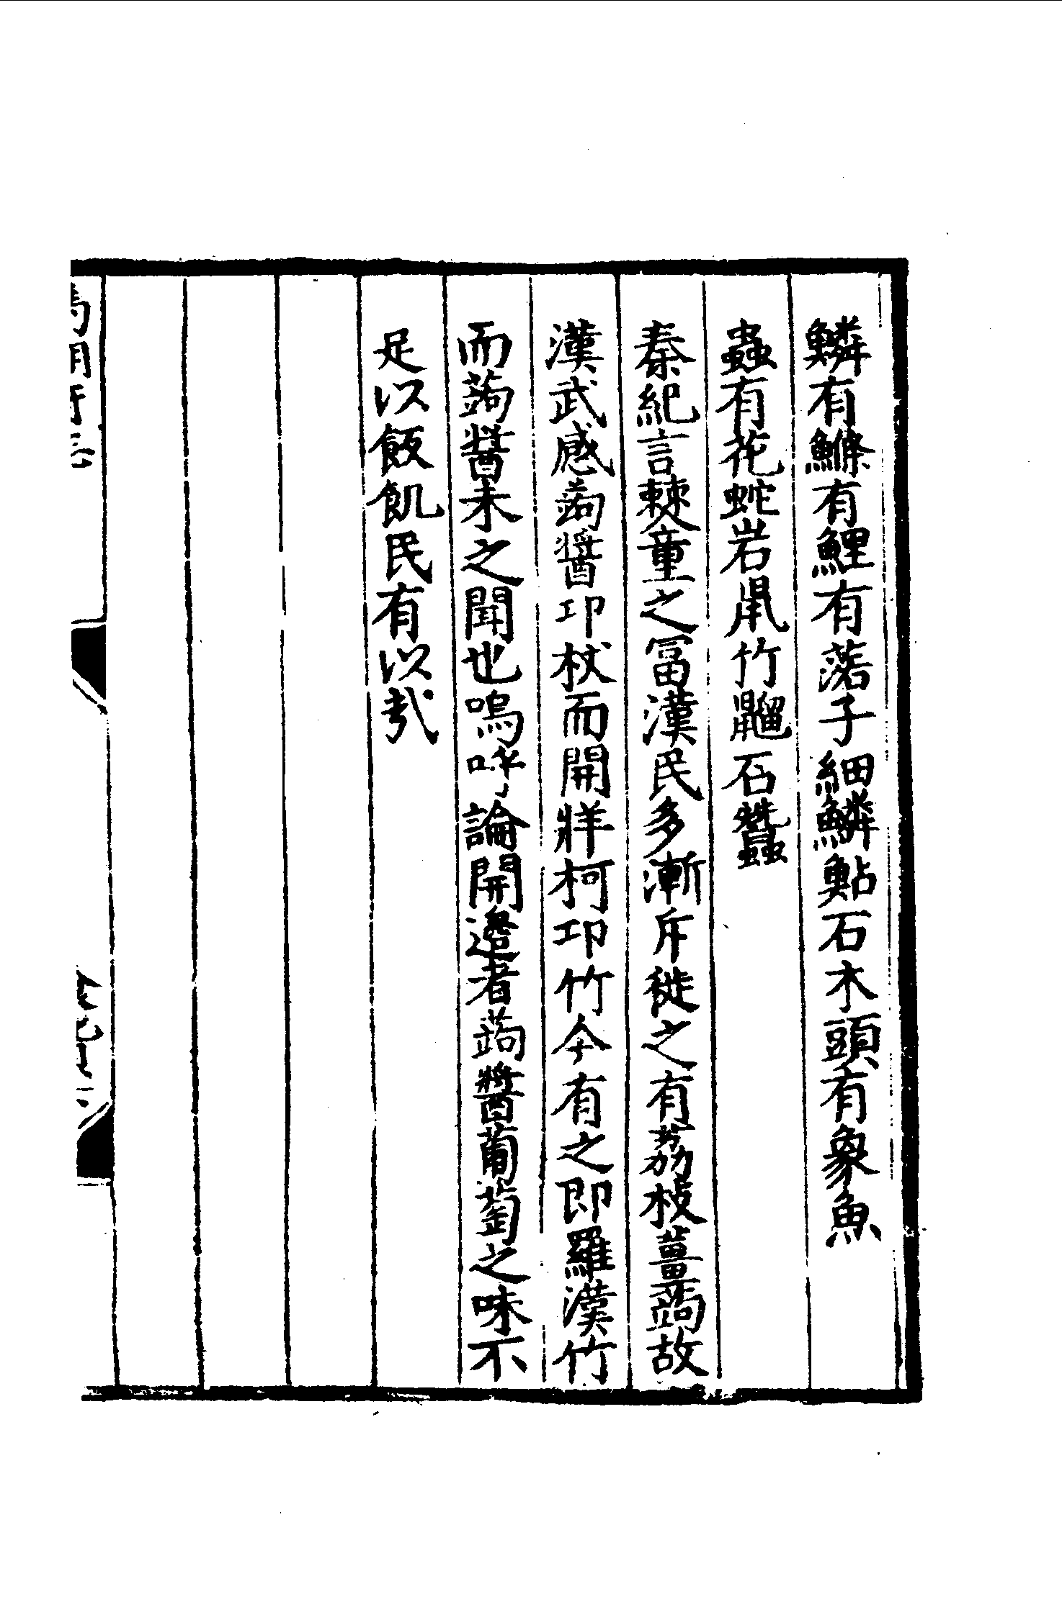 鱗有鰷有鯉有落子細鱗鮎石木頭有象魚
蟲有花蛇岩鼡竹鼺石蠶
秦紀言棘童之冨漢民多漸斥徙之有荔枝薑蒟故
漢武感蒟醬卭杖而開牂柯卭竹今有之即羅漢竹
而蒟醬未之聞也嗚呼論開邉者蒟醬葡萄之味不
足以飯飢民有以㢤